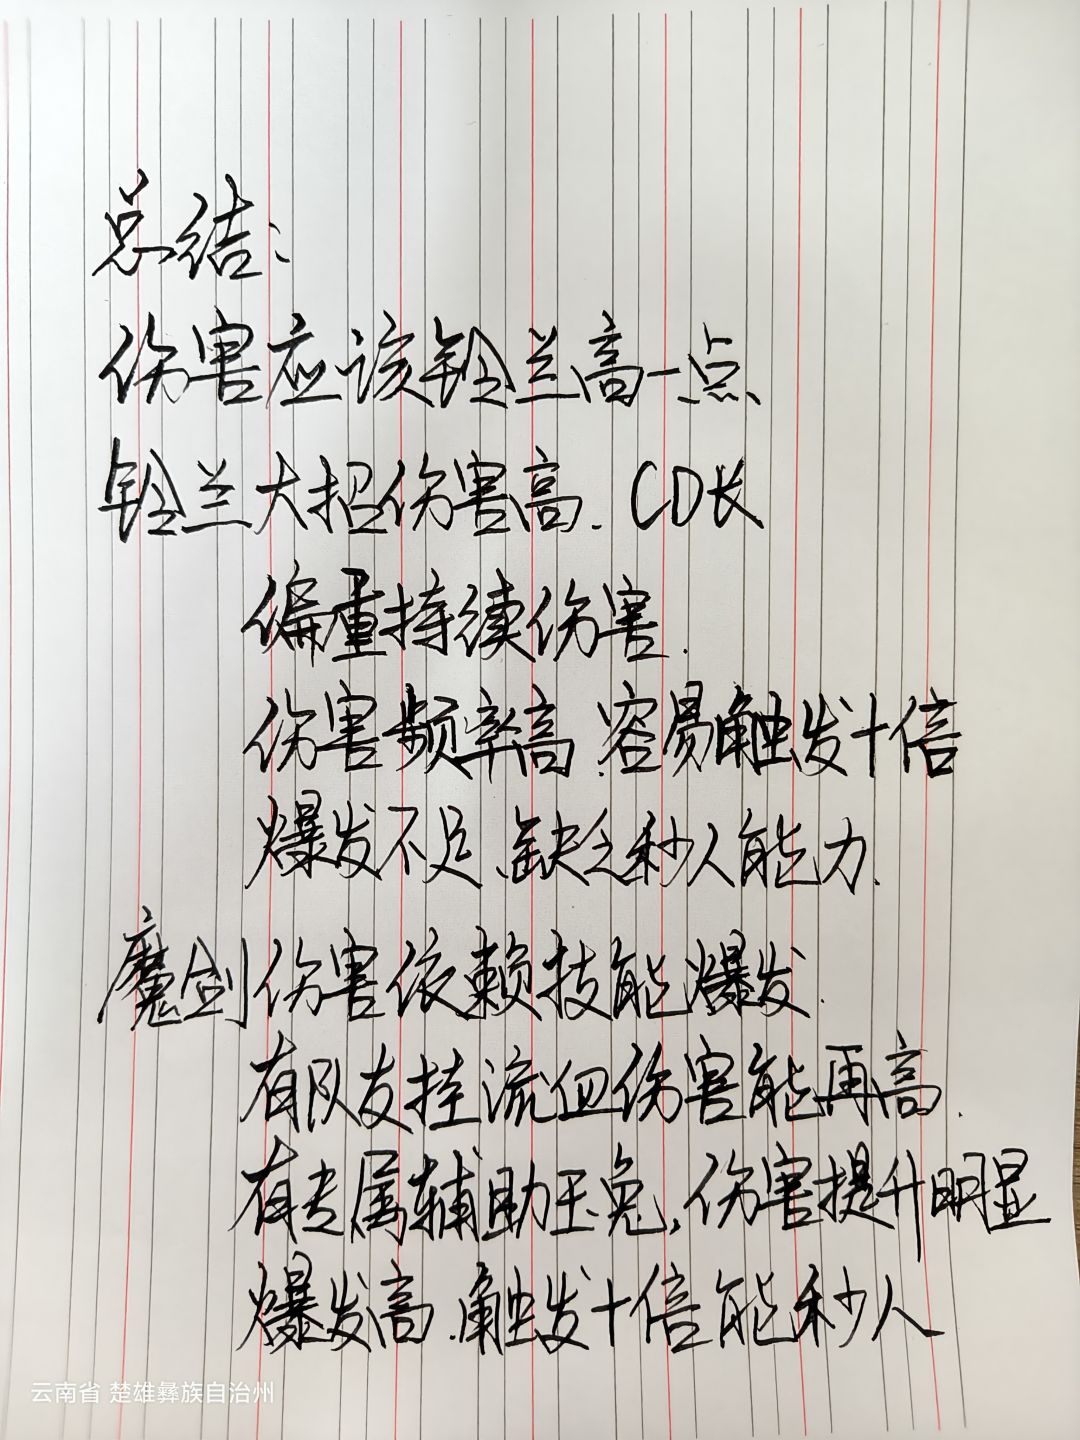 总结：
伤害应该铃兰高一点
铃兰大招伤害高.CD长
偏重持续伤害.
伤害频率高.容易触发十倍
爆发不足、缺乏秒人能力.
魔剑伤害依赖技能爆发.
有队友挂流血伤害能再高.
有专属辅助玉兔,伤害提升明显
爆发高.触发十倍能秒人
云南省 楚雄彝族自治州